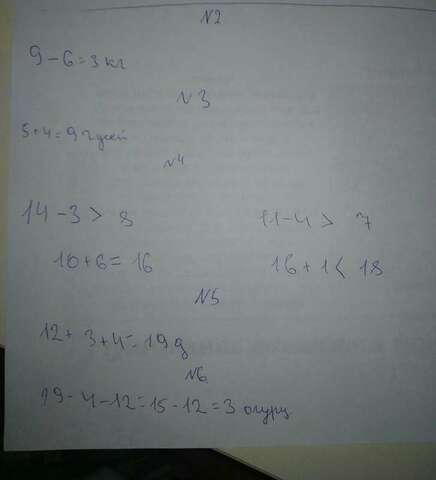 N2
9 - 6 = 3 кг
N3
5 + 4 = 9 гусей
N4
14 - 3 > 8 11 - 4 > 7
10 + 6 = 16 16 + 1 < 18
N5
12 + 3 + 4 = 19 д
N6
19 - 4 - 12 = 15 - 12 = 3 огурц